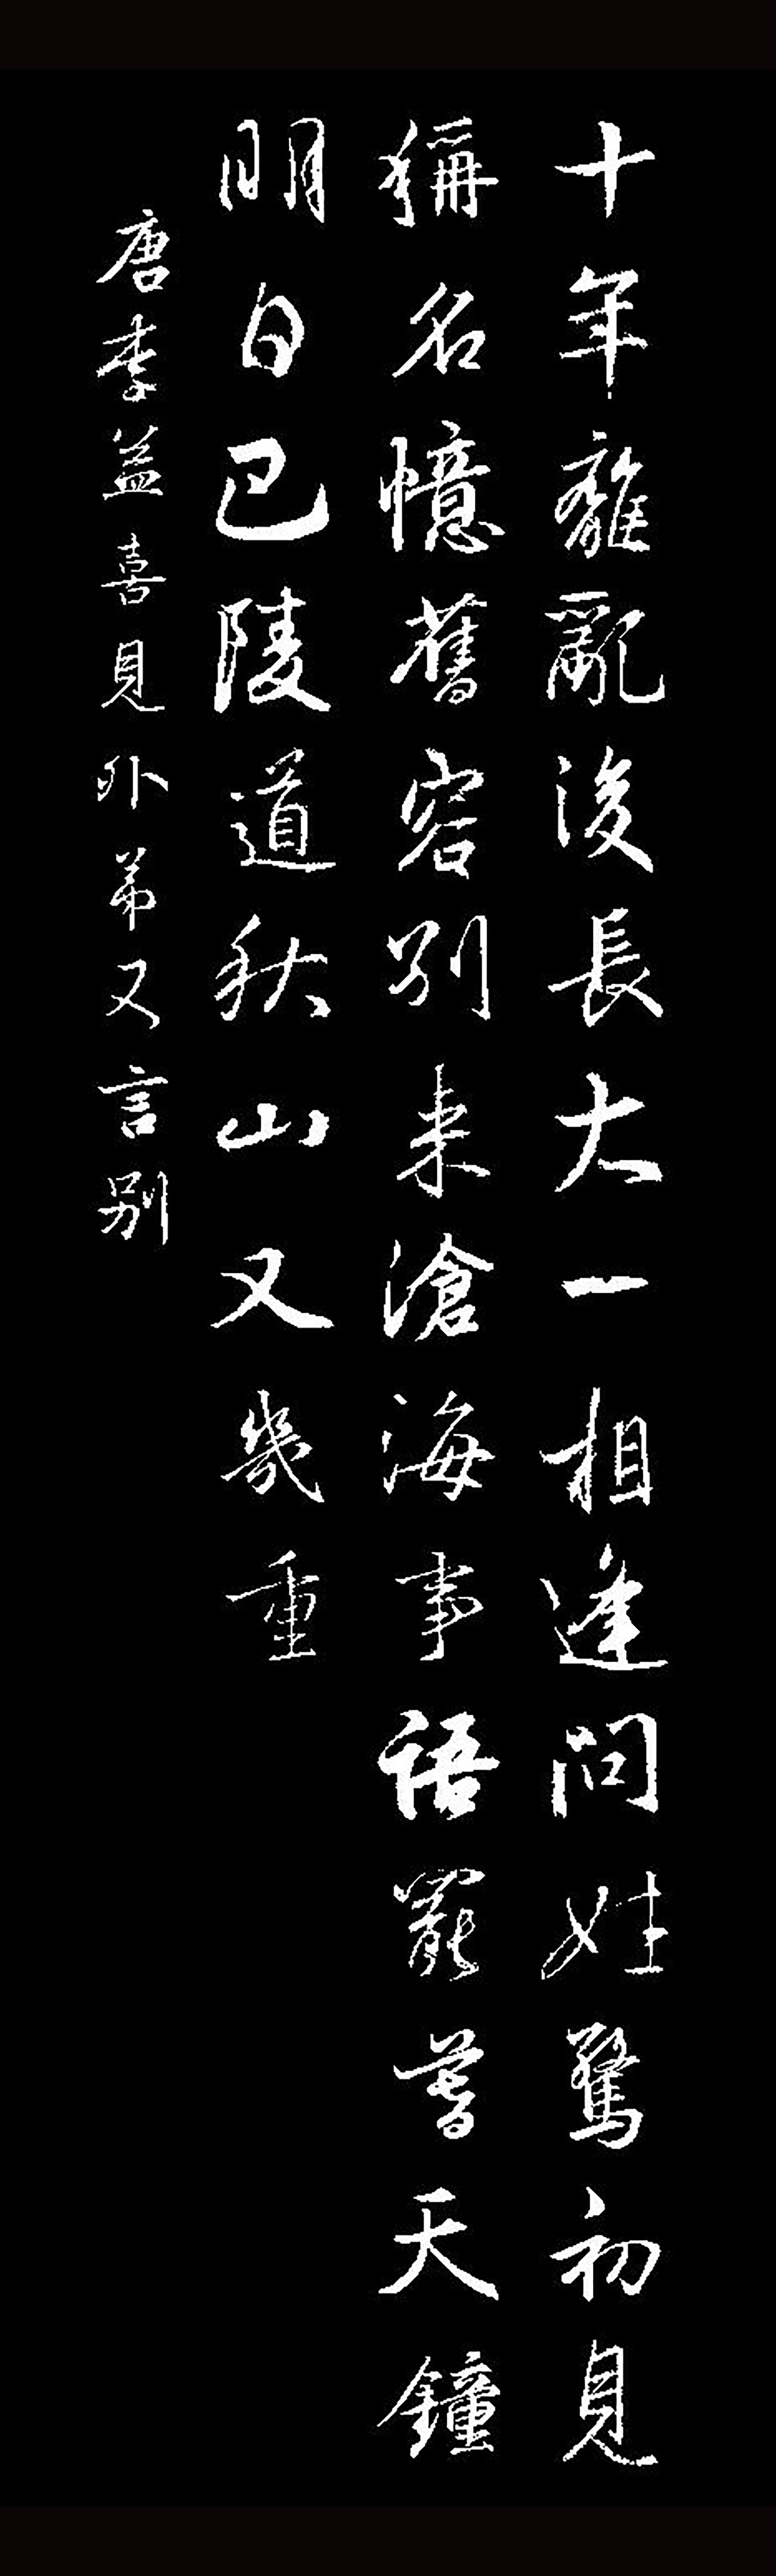 十年離亂後長大一相逢問姓驚初見
稱名憶舊容別来滄海事語罷暮天鐘
明日巴陵道秋山又幾重
唐李益喜見外弟又言別